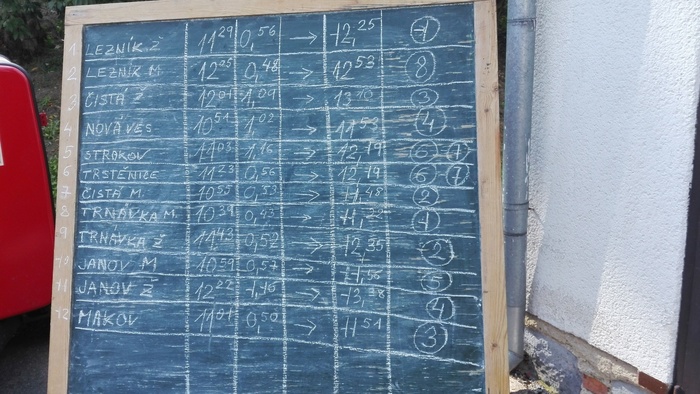 1 LEZNÍK Ž 11 29 0,56 → 12,25 1
2 LEZNÍK M 12 05 0,48 → 12 53 8
3 ČISTÁ Ž 12 01 1,09 → 13 10 3
4 NOVÁ VES 10 51 1,02 → 11 53 4
5 STROKOV 11 03 1,16 → 12,19 6 7
6 TRSTĚNICE 11 23 0,56 → 12,19 6 7
7 ČISTÁ M 10 55 0,53 → 11,48 2
8 TRNÁVKA M 10 39 0,43 → 11,22 1
9 TRNÁVKA Ž 11 43 0,52 → 12,35 2
10 JANOV M 10 59 0,57 → 11,56 5
11 JANOV Ž 12 22 1,16 → 13,38 4
12 MAKOV 11 01 0,50 → 11 51 3